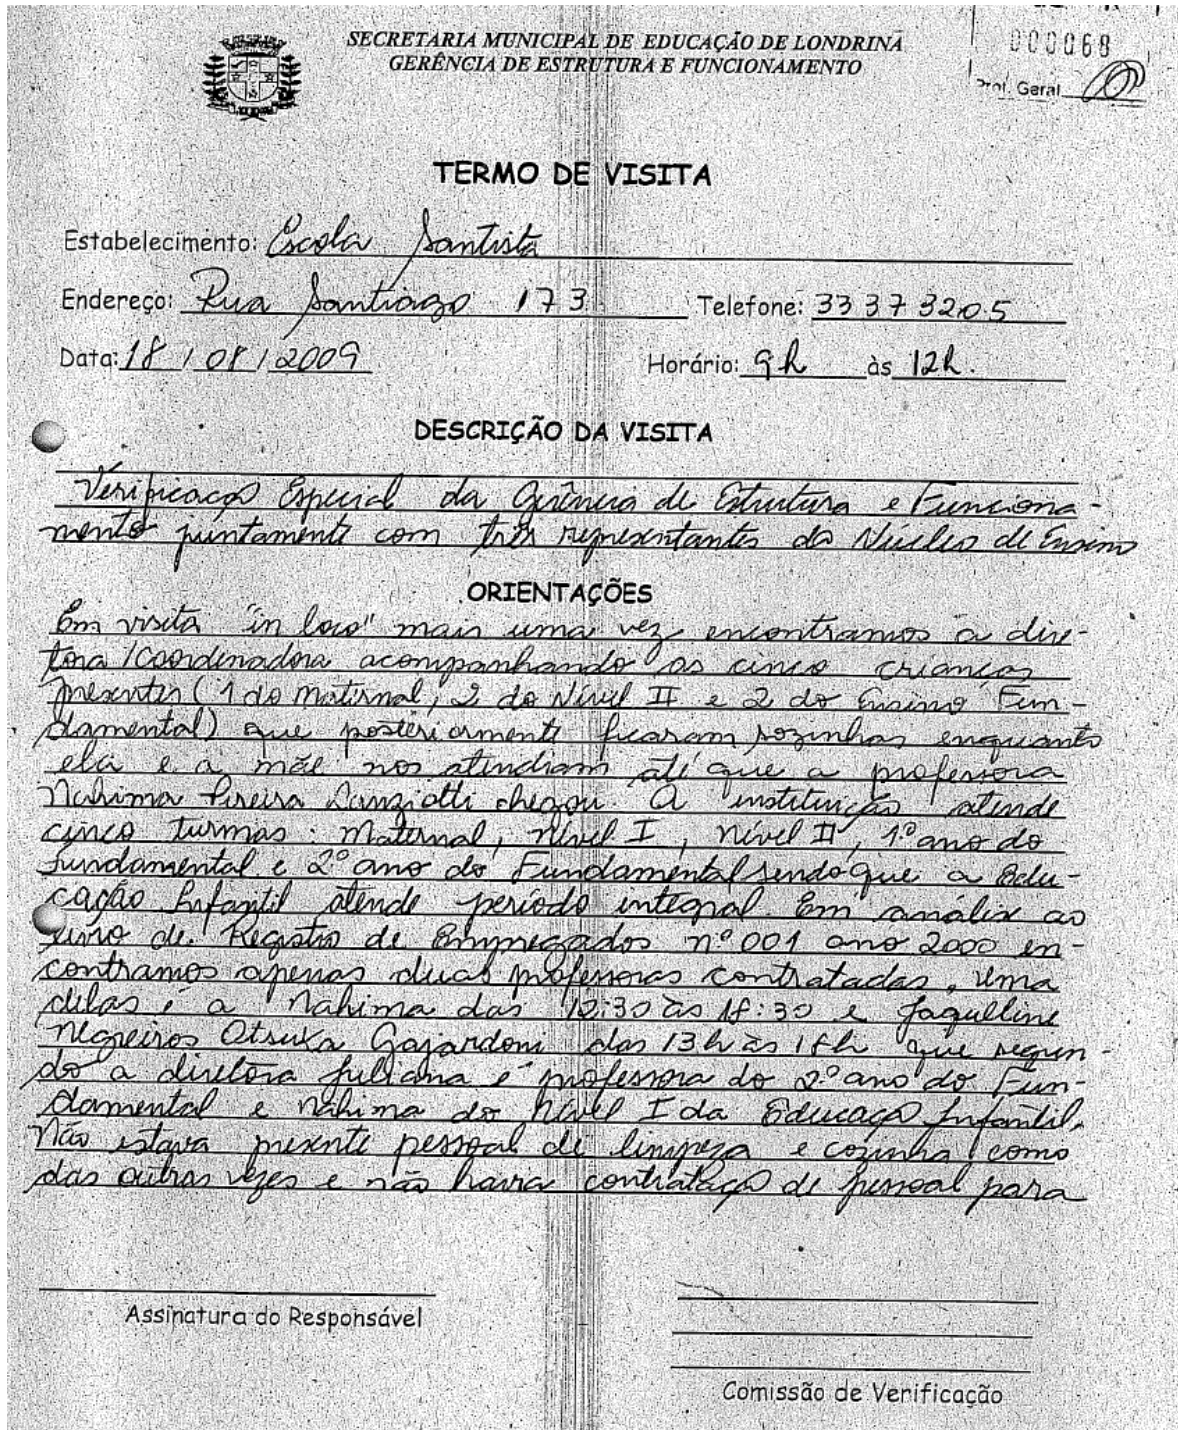 SECRETARIA MUNICIPAL DE EDUCAÇÃO DE LONDRINA
GERÊNCIA DE ESTRUTURA E FUNCIONAMENTO
000068
Prot. Geral
TERMO DE VISITA
Estabelecimento: Escola Santista
Endereço: Rua Santiago 173 Telefone: 33 37 3205
Data: 18 / 08 / 2009 Horário: 9h às 12h.
DESCRIÇÃO DA VISITA
Verificação Especial da Gerência de Estrutura e Funciona-
mento juntamente com três representantes do Núcleo de Ensino
ORIENTAÇÕES
Em visita "in loco" mais uma vez encontramos a dire-
tora/Coordenadora acompanhando as cinco crianças
presentes (1 do maternal, 2 do Nível II e 2 do Ensino Fun-
damental) que posteriormente ficaram sozinhas enquanto
ela e a mãe nos atendiam até que a professora
Nahima Pereira chegou. A instituição atende
cinco turmas: Maternal, Nível I, Nível II, 1º ano do
fundamental e 2º ano do Fundamental sendo que a Edu-
cação Infantil atende período integral. Em análise ao
livro de Registro de Empregados nº 001 ano 2000 en-
contramos apenas duas professoras contratadas, uma
delas é a Nahima das 12:30 às 18:30 e Jaquelline
Negreiros Otsuka Gajardoni das 13h às 18h que segun-
do a diretora Juliana é professora do 2º ano do Fun-
damental e Nahima do Nível I da Educação Infantil.
Não estava presente pessoal de limpeza e cozinha como
das outras vezes e não havia contratação de pessoal para
Assinatura do Responsável
Comissão de Verificação